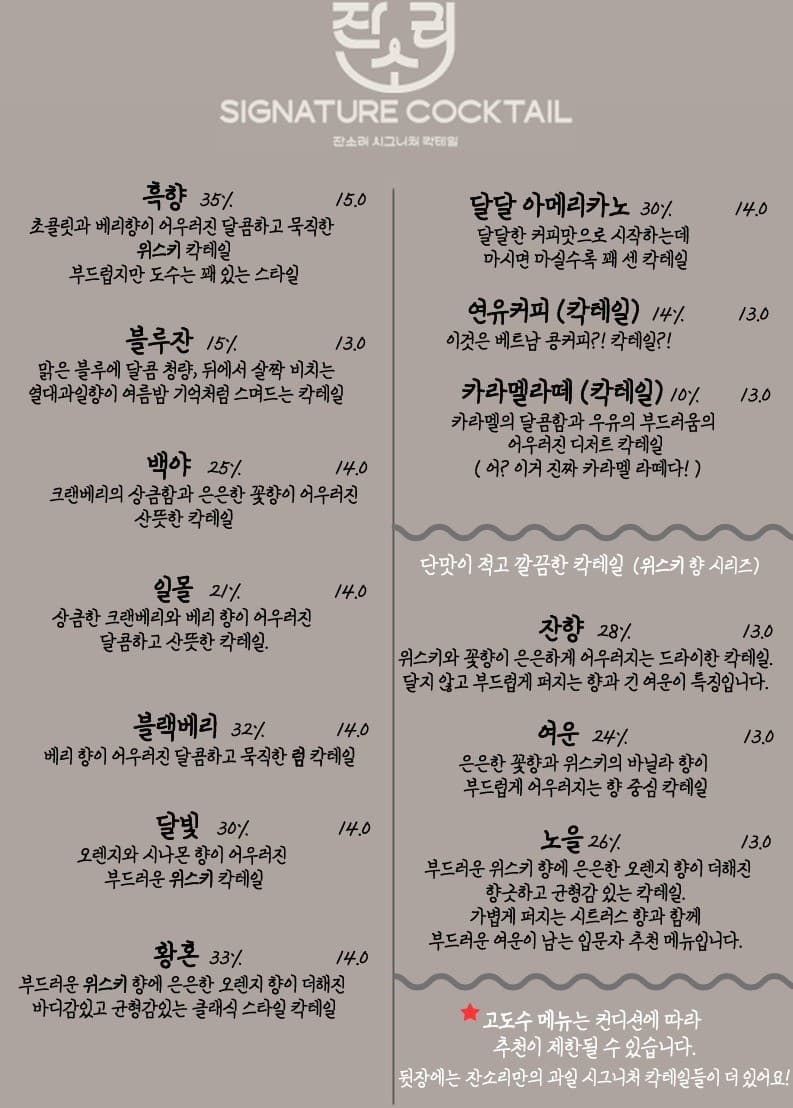 잔소리
SIGNATURE COCKTAIL
잔소리 시그니처 칵테일
흑향 35% 15.0
초콜릿과 베리향이 어우러진 달콤하고 묵직한
위스키 칵테일
부드럽지만 도수는 꽤 있는 스타일
블루잔 15% 13.0
맑은 블루에 달콤 청량, 뒤에서 살짝 비치는
열대과일향이 여름밤 기억처럼 스며드는 칵테일
백야 25% 14.0
크랜베리의 상큼함과 은은한 꽃향이 어우러진
산뜻한 칵테일
일몰 21% 14.0
상큼한 크랜베리와 베리 향이 어우러진
달콤하고 산뜻한 칵테일.
블랙베리 32% 14.0
베리 향이 어우러진 달콤하고 묵직한 럼 칵테일
달빛 30% 14.0
오렌지와 시나몬 향이 어우러진
부드러운 위스키 칵테일
황혼 33% 14.0
부드러운 위스키 향에 은은한 오렌지 향이 더해진
바디감있고 균형감있는 클래식 스타일 칵테일
달달 아메리카노 30% 14.0
달달한 커피맛으로 시작하는데
마시면 마실수록 꽤 센 칵테일
연유커피 (칵테일) 14% 13.0
이것은 베트남 콩커피?! 칵테일?!
카라멜라떼 (칵테일) 10% 13.0
카라멜의 달콤함과 우유의 부드러움의
어우러진 디저트 칵테일
( 어? 이거 진짜 카라멜 라떼다! )
단맛이 적고 깔끔한 칵테일 (위스키 향 시리즈)
잔향 28% 13.0
위스키와 꽃향이 은은하게 어우러지는 드라이한 칵테일.
달지 않고 부드럽게 퍼지는 향과 긴 여운이 특징입니다.
여운 24% 13.0
은은한 꽃향과 위스키의 바닐라 향이
부드럽게 어우러지는 향 중심 칵테일
노을 26% 13.0
부드러운 위스키 향에 은은한 오렌지 향이 더해진
향긋하고 균형감 있는 칵테일.
가볍게 퍼지는 시트러스 향과 함께
부드러운 여운이 남는 입문자 추천 메뉴입니다.
고도수 메뉴는 컨디션에 따라
추천이 제한될 수 있습니다.
뒷장에는 잔소리만의 과일 시그니처 칵테일들이 더 있어요!